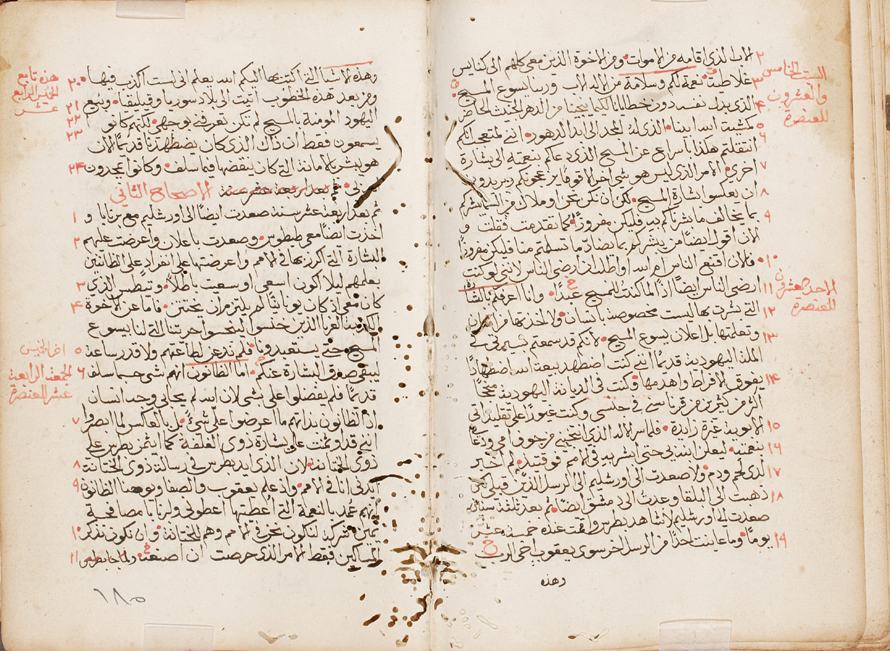 الاب الذي اقامه من الاموات ومن الاخوة الذين معي كلهم الى كنايس
غلاطية نعمة لكم وسلامة من الاله الاب وربنا يسوع المسيح
الذي بذل نفسه دون خطايانا لكيما ينجينا من الدهر الخبيث الحاضر
كمشيت الله ابينا الذي له المجد الى ابد الدهور انني لمتعجب انكم
انتقلتم هكذا باسراع عن المسيح الذي دعاكم بنعمته الى بشارة
اخرى الامر الذي ليس هو شي اخر الا قوما يزعجونكم ويريدون
ان يعكسوا بشارة المسيح لكن ان نكن نحن او ملاك من السما يبشركم
بما يخالف ما بشرناكم به فليكن مفروزا كما تقدمت فقلت و
الان اقول ايضا من يبشركم بما يضاد ما تسلمتم منا فليكن مفروزا
فالان اقنع الناس ام الله او اطلب ان ارضي الناس لانني لو كنت
ارضي الناس ايضا اذا لما كنت للمسيح عبدا وانا اعرفكم بالبشارة
التي بشرت بها ليست مخصوصة بانسان ولا اخذتها من انسان
وتعلمتها بل باعلان يسوع المسيح لانكم قد سمعتم بسيرتي في
الملة اليهودية قديما انني كنت اضطهد بيعة الله اضطهادا
يفوق الافراط واهدمها وكنت في الديانة اليهودية منجحا
اكثر من كثيرين من قرناسي في جنسي وكنت غيورا على تقليداتي
الابوية غيرة زايدة فلما سر الاله الذي انتخبني من جوف امي ودعاني
بنعمته ليعلن ابنه لي حتى ابشر به في الامم فوقتيذ لم اخبر
لذي لحم ودم ولا صعدت الى اورشليم الى الرسل الذين قبلي لكن
ذهبت الى البلقا وعدت الى دمشق ايضا ثم بعد ثلثة سنين
صعدت الى اورشليم لاشاهد بطرس واقمت عنده خمسة عشر
يوما وما عاينت احدا من الرسل اخر سوى يعقوب اخي الرب
وهذه
٢
٣
٤
٥
٦
٧
٨
٩
١٠
١١
١٢
١٣
١٤
١٥
١٦
١٧
١٨
١٩
السبت الخامس
والعشرون
للعنصرة
الاحد العشرون
للعنصرة
وهذه الاشيا التي اكتبها اليكم الله يعلم اني لست اكذب فيها
ومن بعد هذه الخطوب اتيت الى بلاد سوريا وقيليقيا وبيع
اليهود المومنة بالمسيح لم تكن تعرفني بوجهي لكنهم كانوا
يسمعون فقط ان ذاك الذي كان يضطهدنا قديما الان
هو يبشر بالامانة التي كان ينقضها فيما سلف وكانوا يمجدون
الاصحاح الثاني
ثم بعد اربعة عشر سنة صعدت ايضا الى اورشليم مع برنابا و
اخذت ايضا معي طيطوس وصعدت باعلان واعرضت عليهم
البشارة التي اكرز بها في الامم واعرضتها على انفراد على الظانين
بعلمهم ليلا اكون اسعى او سعيت باطلا وتيطس الذي
كان معي اذ كان يونانيا لم يلتزم ان يختتن فاما عن الاخوة
الكذبة الغربا الذين خلسوا ليتجسوا حريتنا التي لنا بيسوع
المسيح حتى يستعبدونا فلم نذعن لطاعتهم ولا قدر ساعة
ليبقى صدق البشارة عندكم اما الظانون انهم شي حسبما سلف
قديما فلم يفضلوا علي بشي لان الله لم يحابي وجه انسان
اذ الظانون بذاتهم ما اعرضوا علي شي بل بالعكس لما ابصروا
انني قد اوتمنت على بشارة ذوي الغلفة كما ايتمن بطرس على
ذوي الختانة لان الذي ايد بطرس في رسالة ذوي الختانة
ايدني انا في الامم واذ علم يعقوب والصفا ويوحنا الظانون
انهم عمد بالنعمة التي اعطيتها اعطوني ولبرنابا مصافحة
يمين شركة لنكون نحن في الامم وهم للختانة وان نكون نتذكر
المساكين فقط الامر الذي حرصت ان اصنعه ولما جا بطرس
٢٠
٢١
٢٢
٢٣
٢٤
١
٢
٣
٤
٥
٦
٧
٨
٩
١٠
١١
هذه تابع
الخميس الرابع
عشر
اخر الخميس
للجمعة الرابعة
عشر للعنصرة
١٨٥